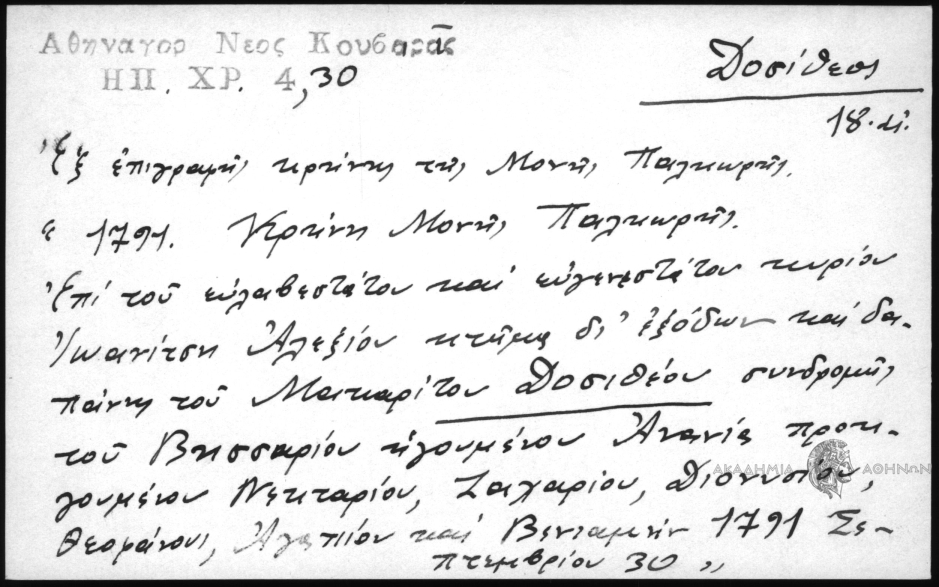 Αθηναγορ Νεος Κουβαρᾶς
ΗΠ. ΧΡ. 4,30
Δοσίθεος
18. αἰ.
Ἐξ ἐπιγραφῆς κρήνης τῆς Μονῆς Παλιωρῆς.
" 1791. Κρήνη Μονῆς Παλιωρῆς.
Ἐπί τοῦ εὐλαβεστάτου καί εὐγενεστάτου κυρίου
Ἰωανίτση Ἀλεξίου κτῆμα δι' ἐξόδων καί δα-
πάνης τοῦ Μακαρίτου Δοσιθέου συνδρομῆς
τοῦ Βησσαρίου ἡγουμένου Ἀνανία προη-
γουμένου Νεκταρίου, Ζαχαρίου, Διονυσίου,
Θεοφάνους, Ἀγαπίου καί Βενιαμήν 1791 Σε-
πτεμβρίου 30 "
ΑΚΑΔΗΜΙΑ ΑΘΗΝΩΝ